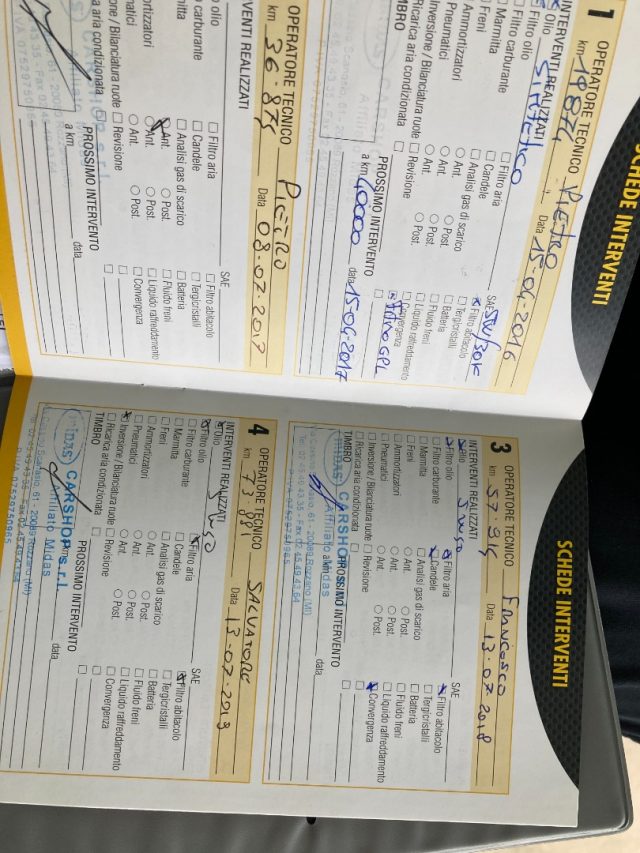 SCHEDE INTERVENTI
1 OPERATORE TECNICO Pietro
km Data 15-04-2016
INTERVENTI REALIZZATI
Olio SINTETICO SAE 5W/30K
Filtro olio Filtro aria Filtro abitacolo
Filtro carburante Candele Tergicristalli
Marmitta Analisi gas di scarico Batteria
Freni Ant. Post. Fluido freni
Ammortizzatori Ant. Post. Liquido raffreddamento
Pneumatici Ant. Post. Convergenza
Inversione / Bilanciatura ruote Revisione Filtro GPL
Ricarica aria condizionata
TIMBRO PROSSIMO INTERVENTO
a km 40000 data 15-04-2017
OPERATORE TECNICO PIETRO
km 36.875 Data 03.07.2017
INTERVENTI REALIZZATI
SAE
olio Filtro aria Filtro abitacolo
carburante Candele Tergicristalli
Marmitta Analisi gas di scarico Batteria
Ant. Post. Fluido freni
Ant. Post. Liquido raffreddamento
Ant. Post. Convergenza
/ Bilanciatura ruote Revisione
aria condizionata
PROSSIMO INTERVENTO
a km data
SCHEDE INTERVENTI
3 OPERATORE TECNICO Francesco
km 57.815 Data 13.07.2018
INTERVENTI REALIZZATI
Olio SAE
Filtro olio Filtro aria Filtro abitacolo
Filtro carburante Candele Tergicristalli
Marmitta Analisi gas di scarico Batteria
Freni Ant. Post. Fluido freni
Ammortizzatori Ant. Post. Liquido raffreddamento
Pneumatici Ant. Post. Convergenza
Inversione / Bilanciatura ruote Revisione
Ricarica aria condizionata
TIMBRO PROSSIMO INTERVENTO
CARSHOP
Affiliato Midas
a km data
4 OPERATORE TECNICO SALVATORE
km 73.881 Data 13-07-2019
INTERVENTI REALIZZATI
Olio SAE
Filtro olio Filtro aria Filtro abitacolo
Filtro carburante Candele Tergicristalli
Marmitta Analisi gas di scarico Batteria
Freni Ant. Post. Fluido freni
Ammortizzatori Ant. Post. Liquido raffreddamento
Pneumatici Ant. Post. Convergenza
Inversione / Bilanciatura ruote Revisione
Ricarica aria condizionata
TIMBRO PROSSIMO INTERVENTO
MIDAS CARSHOP s.r.l.
Affiliato Midas
data